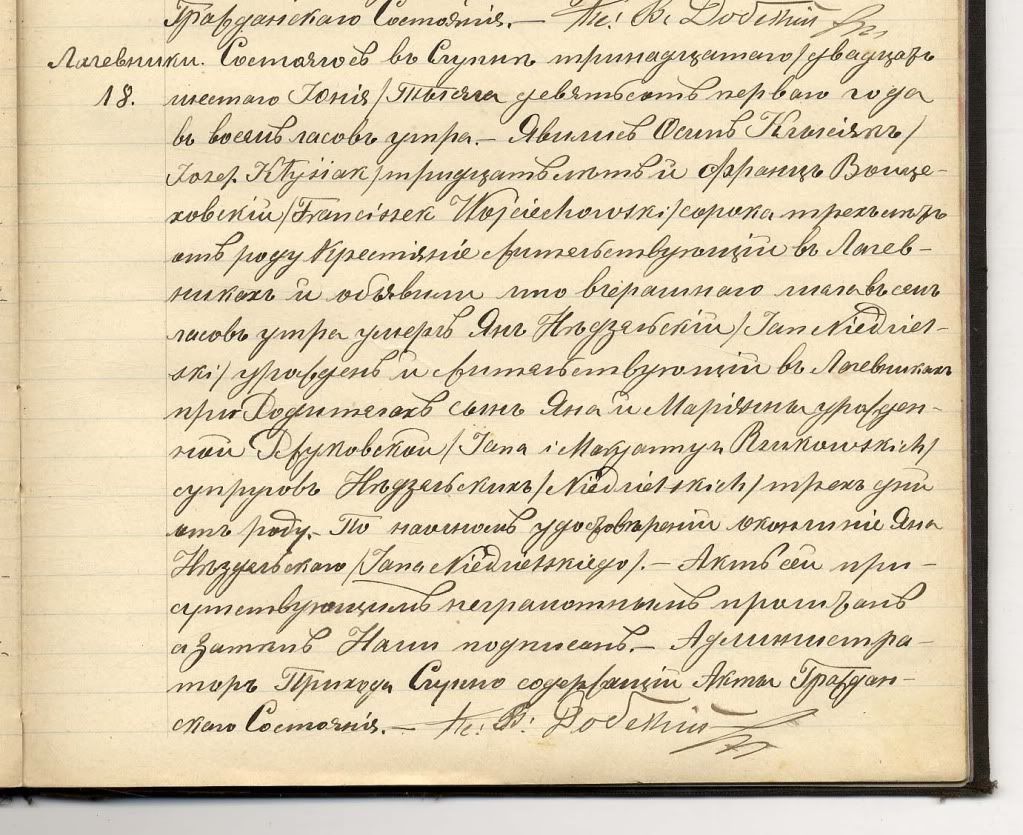 Гражданскаго Состоянія. — Кс: В: Добскій
Лагевники. Состоялось въ Слупи тринадцатаго/двадцать
18. шестаго Іюня/Тысяча девятьсотъ перваго года
въ восемь часовъ утра. — Явились Осипъ Клысіякъ/
Jozef Kłysiak/тридцатьлѣтъ и Францъ Войце-
ховскій/Franciszek Wojciechowski/сорока трехъ лѣтъ
отъ роду Крестіяне жительствующіи въ Лагев-
никахъ и объявили что вчерашнаго числа въ семь
часовъ утра умеръ Янъ Нѣдзельскій/Jan Niedziel-
ski/урожденъ и жительствующій въ Лагевникахъ
при Родителахъ сынъ Яна и Маріянны урожден-
ной Бжуковской/Jana i Maryanny z Bzukowskich/
супруговъ Нѣдзельскихъ/Niedzielskich/трехъ дни
отъ роду. — По наочномъ удостовѣреніи окончиніе Яна
Нѣздельскаго/Jana Niedzielskiego/. — Актъ сей при-
сутствующимъ неграмотнымъ прочитанъ
а Затѣмъ Нами подписанъ. — Администра-
торъ Прихода Слупно содержащій Акты Граждан-
скаго Состоянія. — Кс: В: Добскій